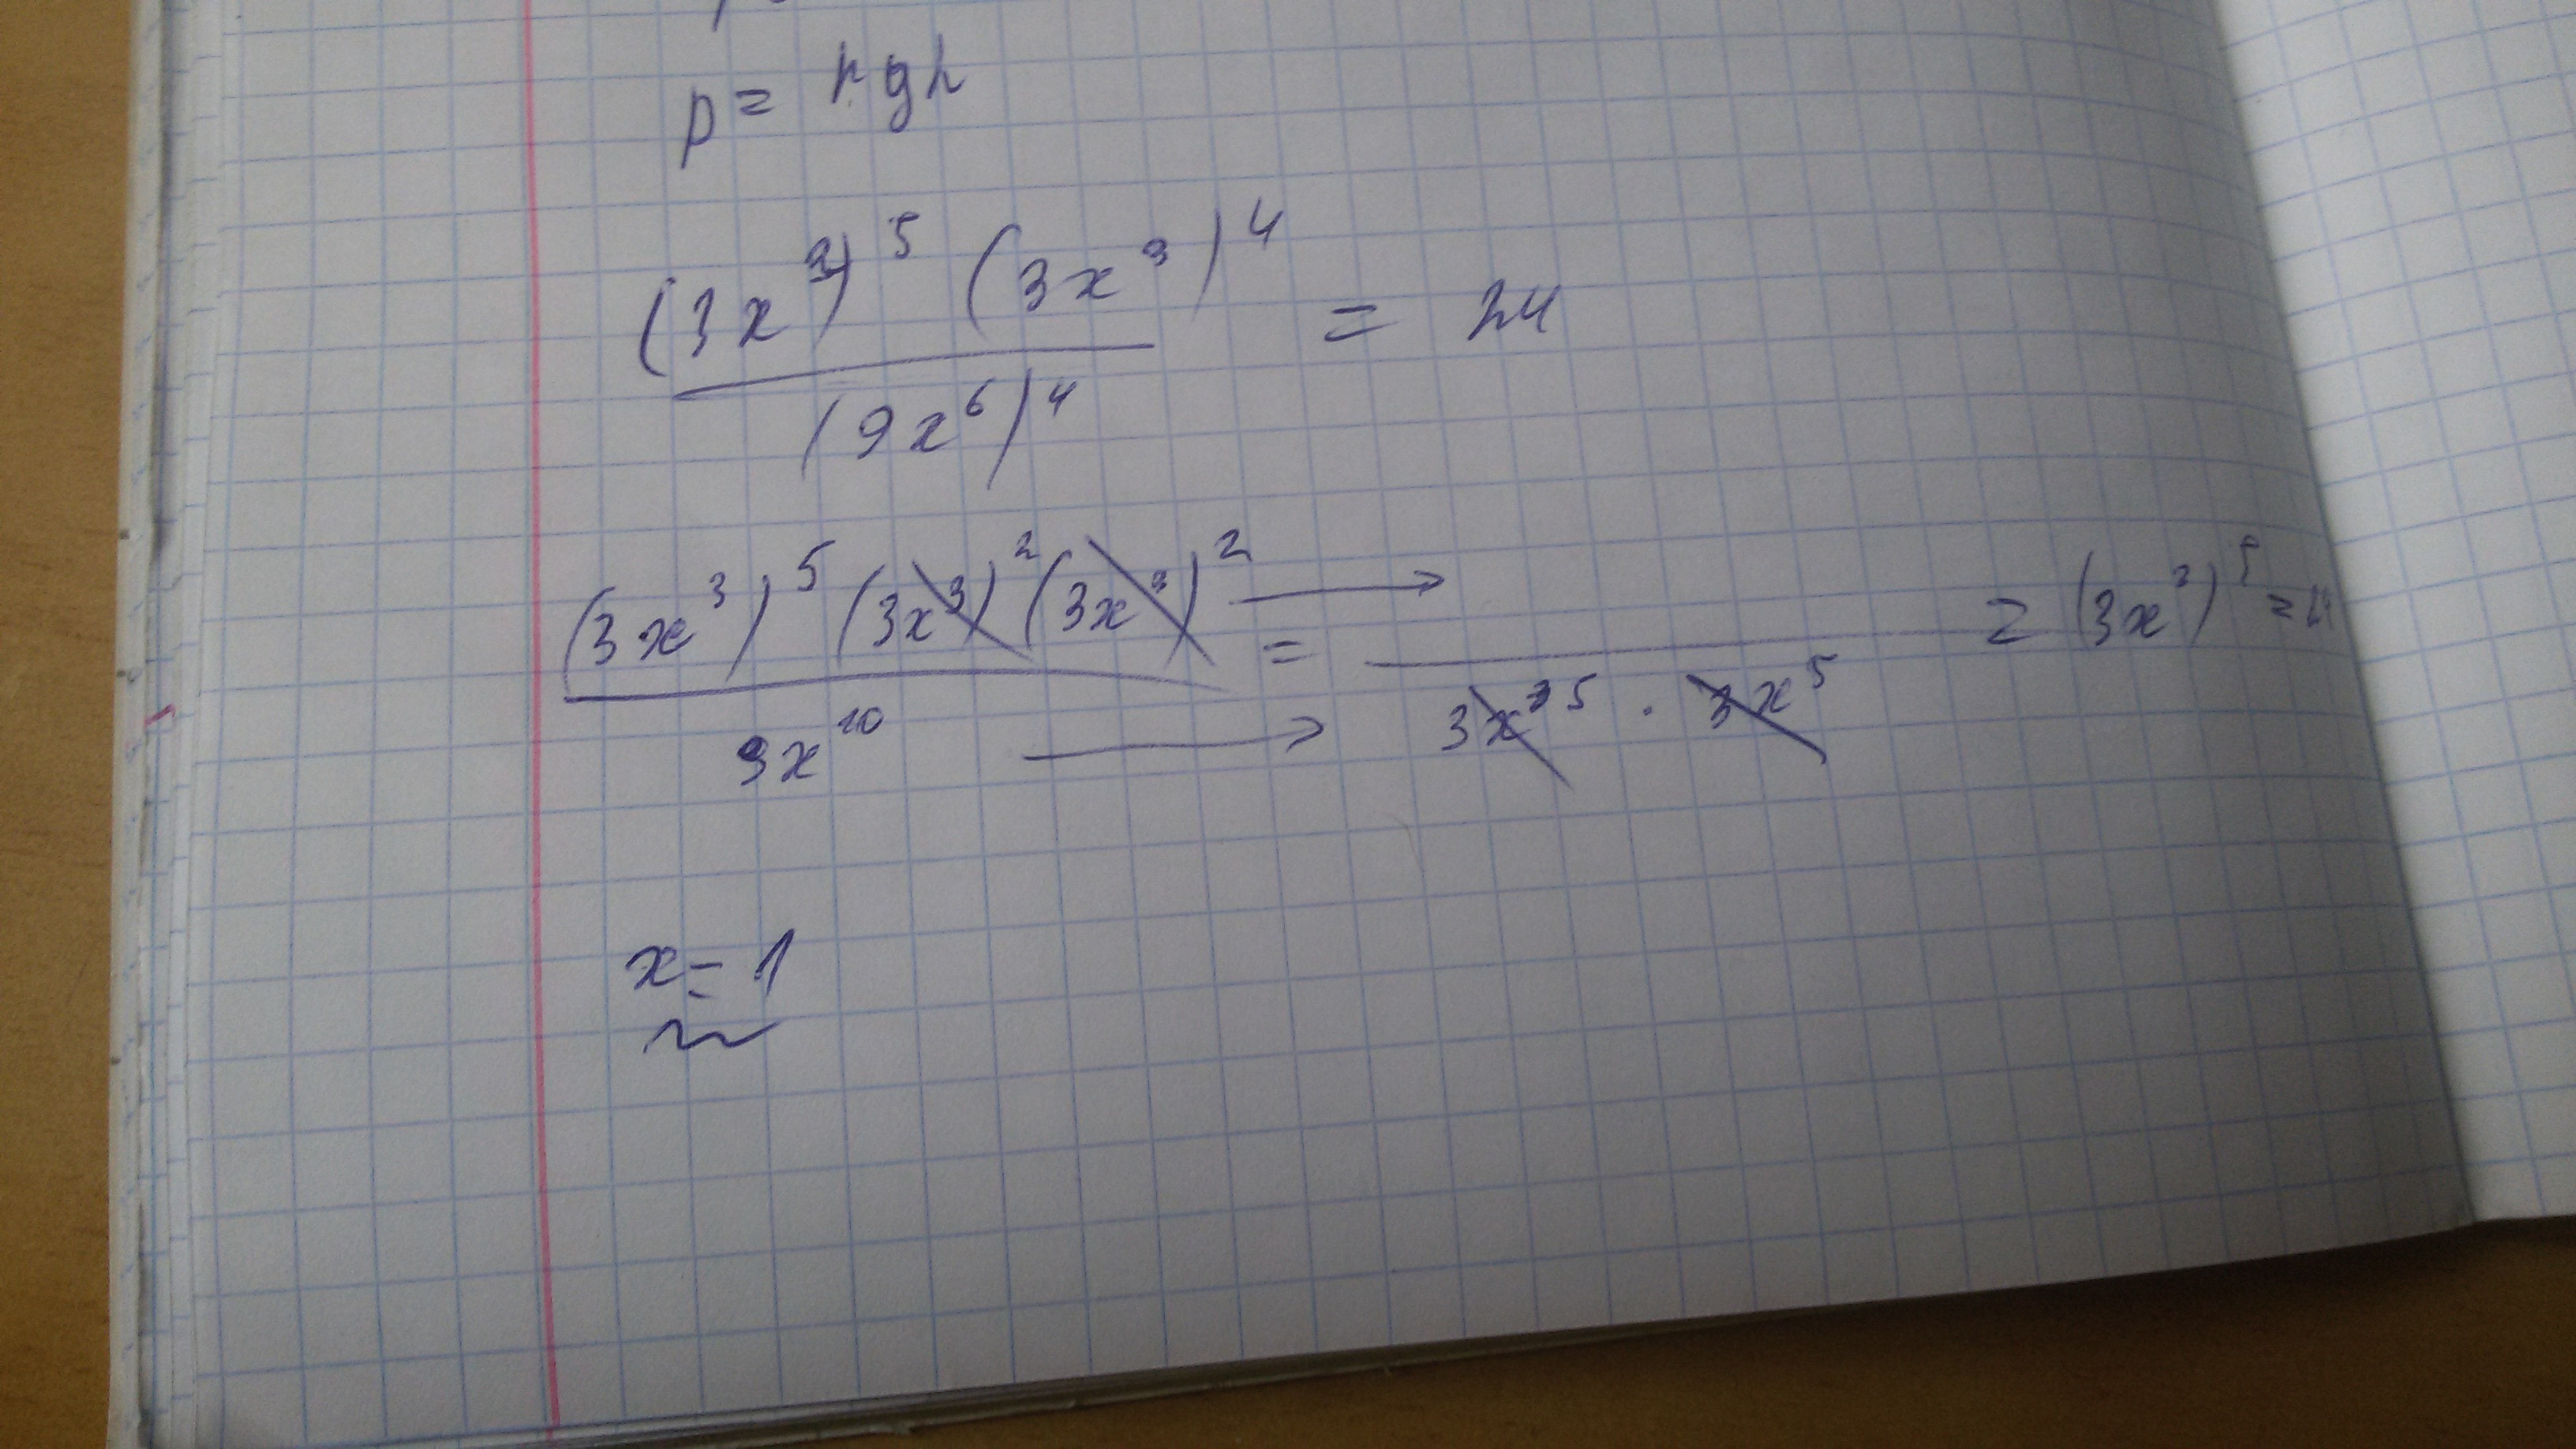 p = rgh
(3x³)⁵ (3x³)⁴ / (9x⁶)⁴ = 24
(3x³)⁵ (3x³)² (3x³)² / 9x¹⁰ → = → / 3x³⁵ · 3x⁵ = (3x³)⁵ = 24
x = 1